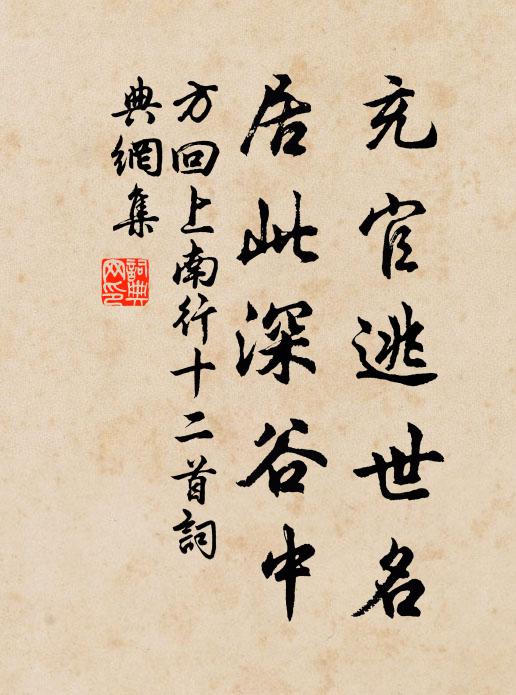 充官逃世名
居此深谷中
方回上南行十二首詞
典網集
詞典
網印